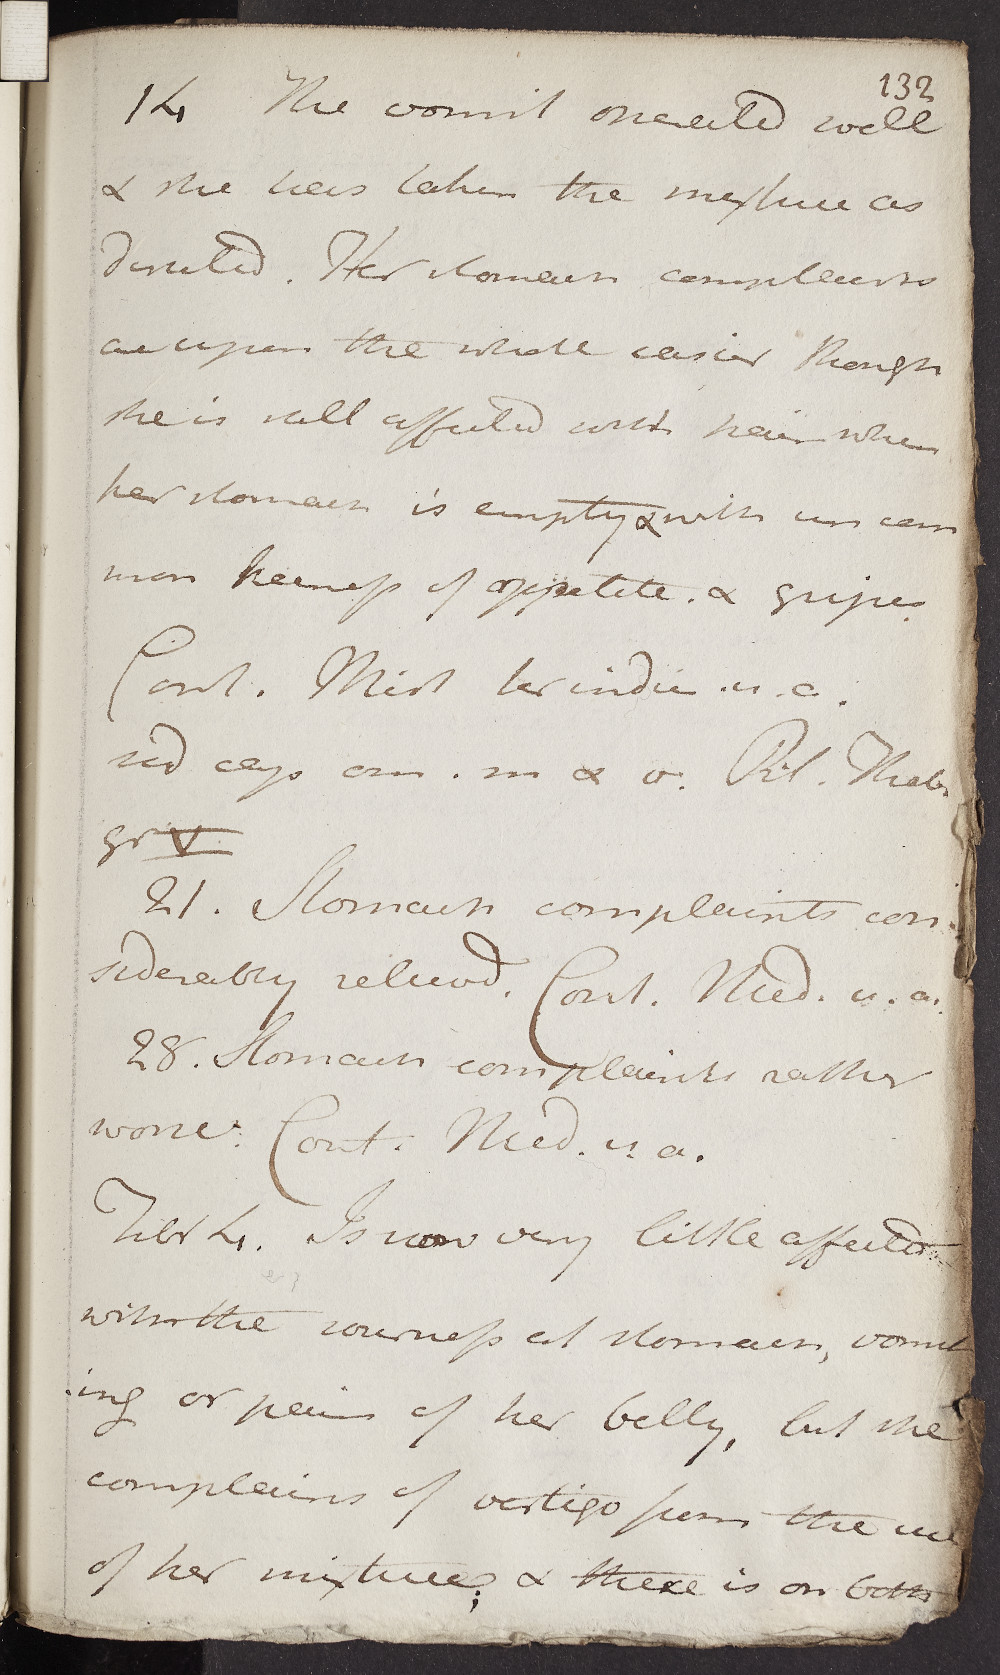 132
14 The vomit operated well
& she has taken the mixture as
directed. Her stomach complaints
are upon the whole easier though
she is still affected with pain when
her stomach is empty & with uncom
mon keeness of appetite. & gripes.
Cont. Mist ter indie u. a.
sed cap om. m & v. Pil. Theb.
gr V
21. Stomach complaints con
siderably relievd. Cont. Med. u. a.
28. Stomach complaints rather
worse. Cont. Med. u. a.
Febr 4. Is now very little affected
with the sourness at stomach, vomit
ing or pain of her belly, but she
complains of vertigo from the use
of her mixture; & there is on both